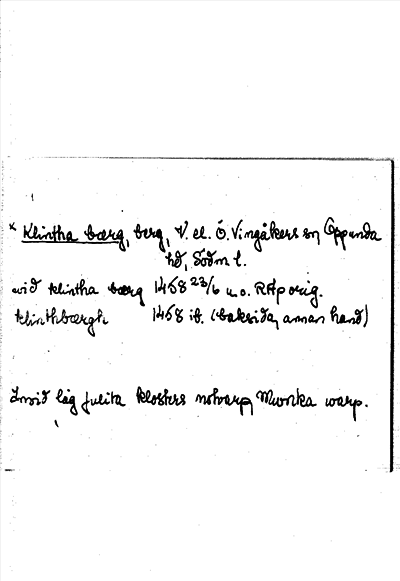 * Klintha bærg, berg, V. el. Ö. Vingåkers sn, Oppunda
hd, Södm l.
wid klintha bærg 1458 23/6 u.o. RAp orig.
klinthbærgh 1458 ib. (baksida, annan hand)
Invid låg Julita klosters notvarp, Mwnka warp.